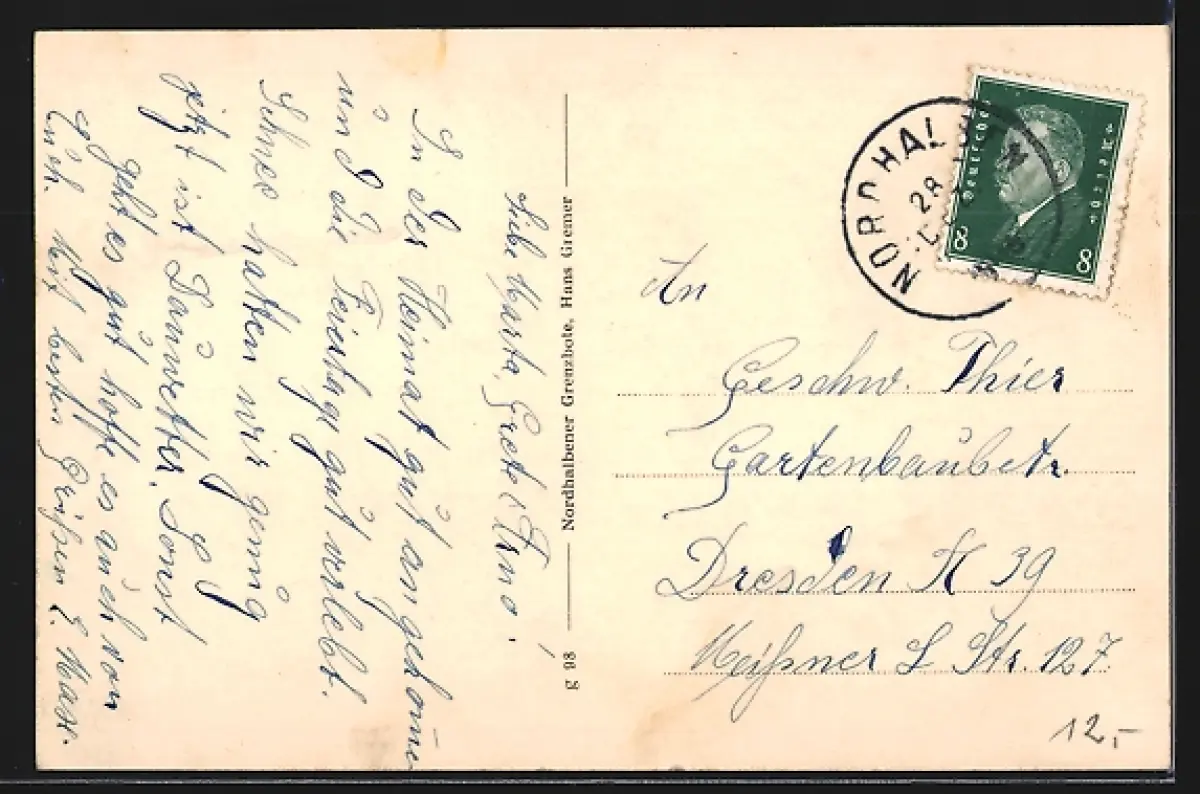 Liebe Marta, Gretel, Arno!
In der Heimat gut angekom̅e
und die Feiertage gut verlebt.
Schnee hatten wir genug
jetzt ist Tauwetter. Sonst
geht es gut hoffe es auch von
Euch. Mit besten Grüßen
g 98 Nordhalbener Grenzbote, Hans Gremer
NORDHAL
28
Deutsches Reich
8 8
An
Geschw. Thier
Gartenbaubetr.
Dresden N 39
Meißner L Str. 127
12,-